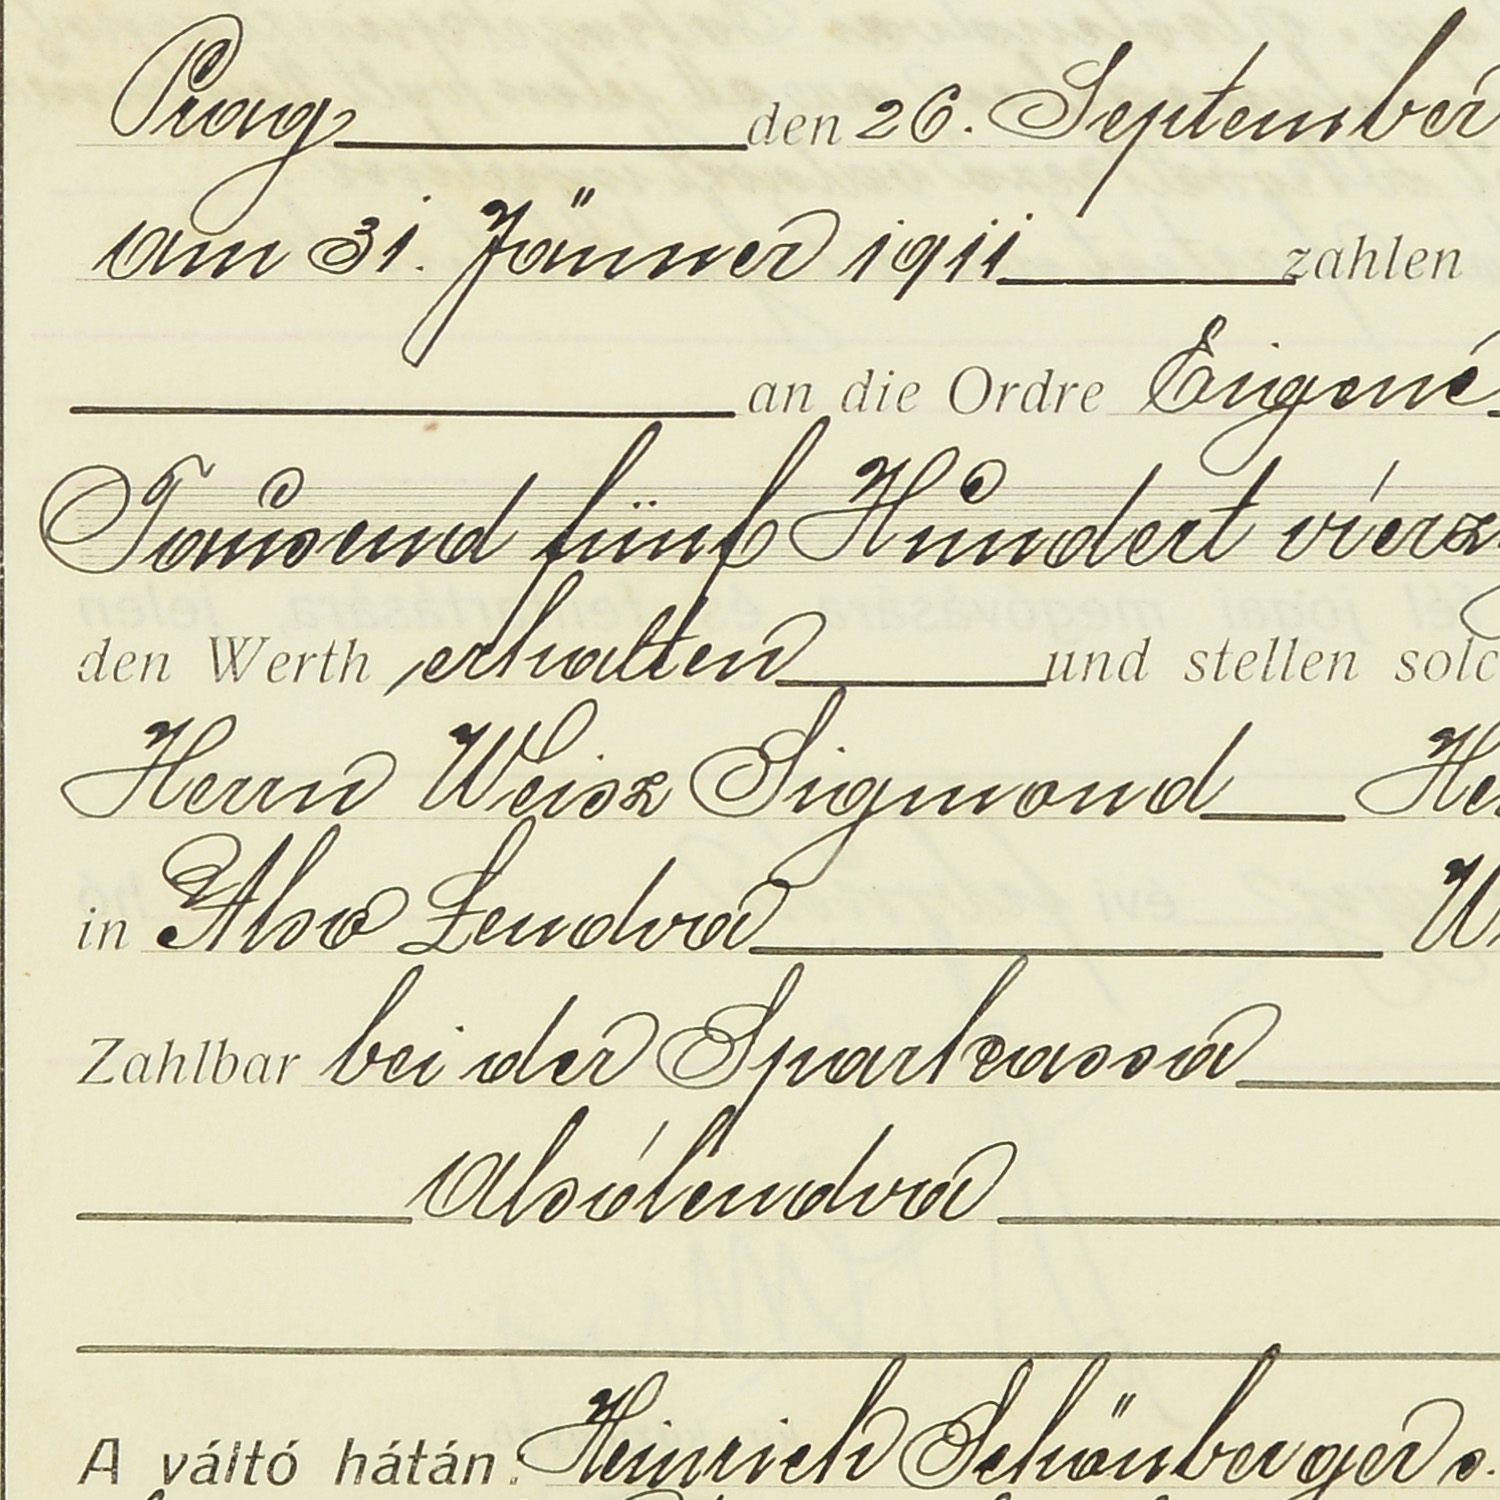 Prag den 26. September
am 31. Jänner 1911 zahlen
an die Ordre Eigene
Tausend fünf Hundert vierz
den Werth erhalten und stellen solc
Herrn Weisz Sigmond Her
in Alsó Lendva
Zahlbar bei der Sparkassa
Alsólendva
A váltó hátán. Heinrich Schönberger s.